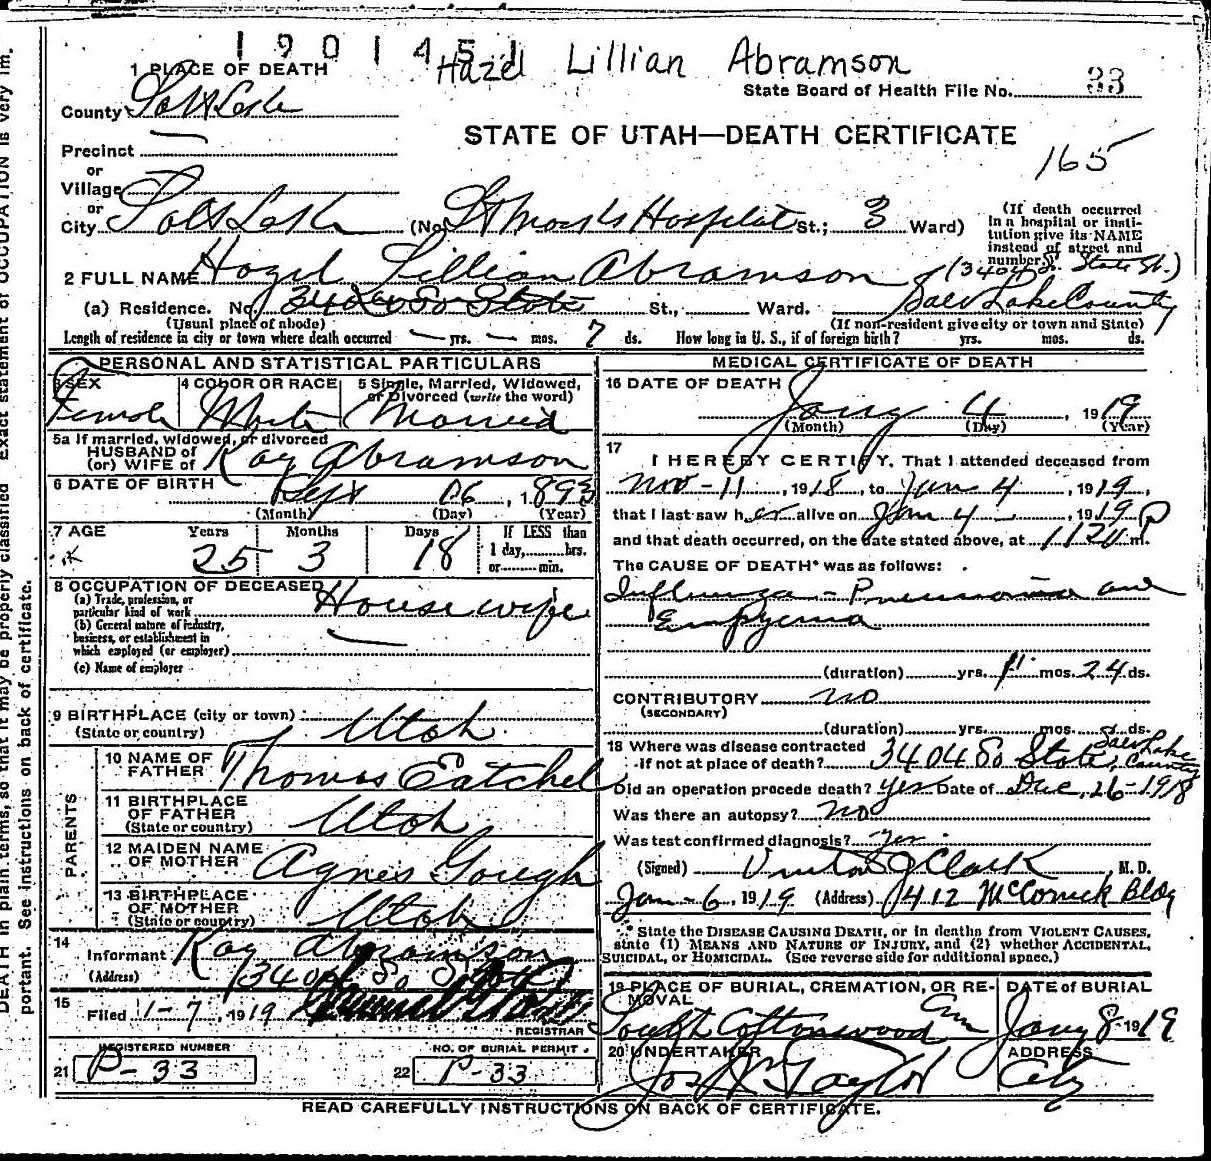 1901451
Hazel Lillian Abramson
1 PLACE OF DEATH
State Board of Health File No. 33
County Salt Lake
STATE OF UTAH—DEATH CERTIFICATE
165
Precinct
or
Village
or
City Salt Lake (No. St Marks Hospital St.; 3 Ward)
(If death occurred in a hospital or institution give its NAME instead of street and number)
2 FULL NAME Hazel Lillian Abramson (3404 So. State St.)
(a) Residence. No. 3404 So State St., Ward. Salt Lake County
(Usual place of abode) (If non-resident give city or town and State)
Length of residence in city or town where death occurred — yrs. — mos. 7 ds. How long in U. S., if of foreign birth? yrs. mos. ds.
PERSONAL AND STATISTICAL PARTICULARS
3 SEX Female
4 COLOR OR RACE White
5 Single, Married, Widowed, or Divorced (write the word) Married
5a If married, widowed, or divorced
HUSBAND of
(or) WIFE of Ray Abramson
6 DATE OF BIRTH Sept 06, 1893
(Month) (Day) (Year)
7 AGE Years Months Days If LESS than
25 3 18 1 day, hrs.
or min.
8 OCCUPATION OF DECEASED
(a) Trade, profession, or
particular kind of work Housewife
(b) General nature of industry,
business, or establishment in
which employed (or employer)
(c) Name of employer
9 BIRTHPLACE (city or town)
(State or country) Utah
PARENTS
10 NAME OF
FATHER Thomas Eatchel
11 BIRTHPLACE
OF FATHER
(State or country) Utah
12 MAIDEN NAME
OF MOTHER Agnes Gough
13 BIRTHPLACE
OF MOTHER
(State or country) Utah
14
Informant Ray Abramson
(Address) 3404 So State
15
Filed 1-7, 1919
REGISTRAR
REGISTERED NUMBER
21 P-33
NO. OF BURIAL PERMIT
22 P-33
MEDICAL CERTIFICATE OF DEATH
16 DATE OF DEATH
Jany 4, 1919
(Month) (Day) (Year)
17
I HEREBY CERTIFY, That I attended deceased from
Nov-11, 1918, to Jan 4, 1919,
that I last saw her alive on Jan 4, 1919
and that death occurred, on the date stated above, at 1120 P m.
The CAUSE OF DEATH* was as follows:
Influenza - Pneumonia and
Empyema
(duration) yrs. 1 mos. 24 ds.
CONTRIBUTORY no
(SECONDARY)
(duration) yrs. mos. ds.
18 Where was disease contracted
if not at place of death? 3404 So State, Salt Lake County
Did an operation procede death? yes Date of Dec, 26-1918
Was there an autopsy? no
Was test confirmed diagnosis? yes
(Signed) Vinton J Clark M. D.
Jan-6, 1919 (Address) 412 McCornick Bldg
* State the DISEASE CAUSING DEATH, or in deaths from VIOLENT CAUSES,
state (1) MEANS AND NATURE OF INJURY, and (2) whether ACCIDENTAL,
SUICIDAL, or HOMICIDAL. (See reverse side for additional space.)
19 PLACE OF BURIAL, CREMATION, OR REMOVAL
South Cottonwood Cem
DATE of BURIAL
Jany 8-1919
20 UNDERTAKER
Jos Wm Taylor
ADDRESS
City
READ CAREFULLY INSTRUCTIONS ON BACK OF CERTIFICATE.
DEATH in plain terms, so that it may be properly classified. Exact statement of OCCUPATION is very im-
portant. See instructions on back of certificate.